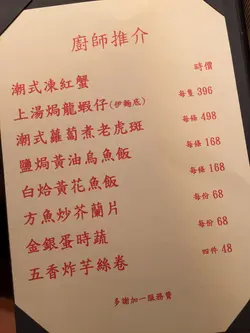 廚師推介
潮式凍紅蟹 時價
上湯焗龍蝦仔(伊麵底) 每隻 396
潮式蘿蔔煮老虎斑 每條 498
鹽焗黃油烏魚飯 每條 168
白焓黃花魚飯 每條 168
方魚炒芥蘭片 每份 68
金銀蛋時蔬 每份 68
五香炸芋絲卷 四件 48
多謝加一服務費